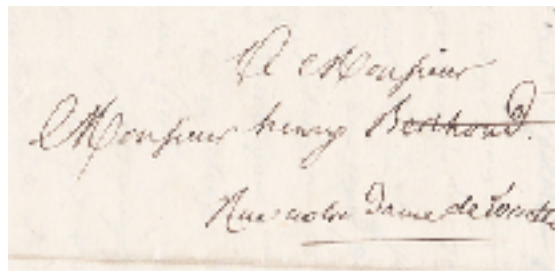 A Monsieur
Monsieur henry Berthoud.
Rue notre Dame de Lorette